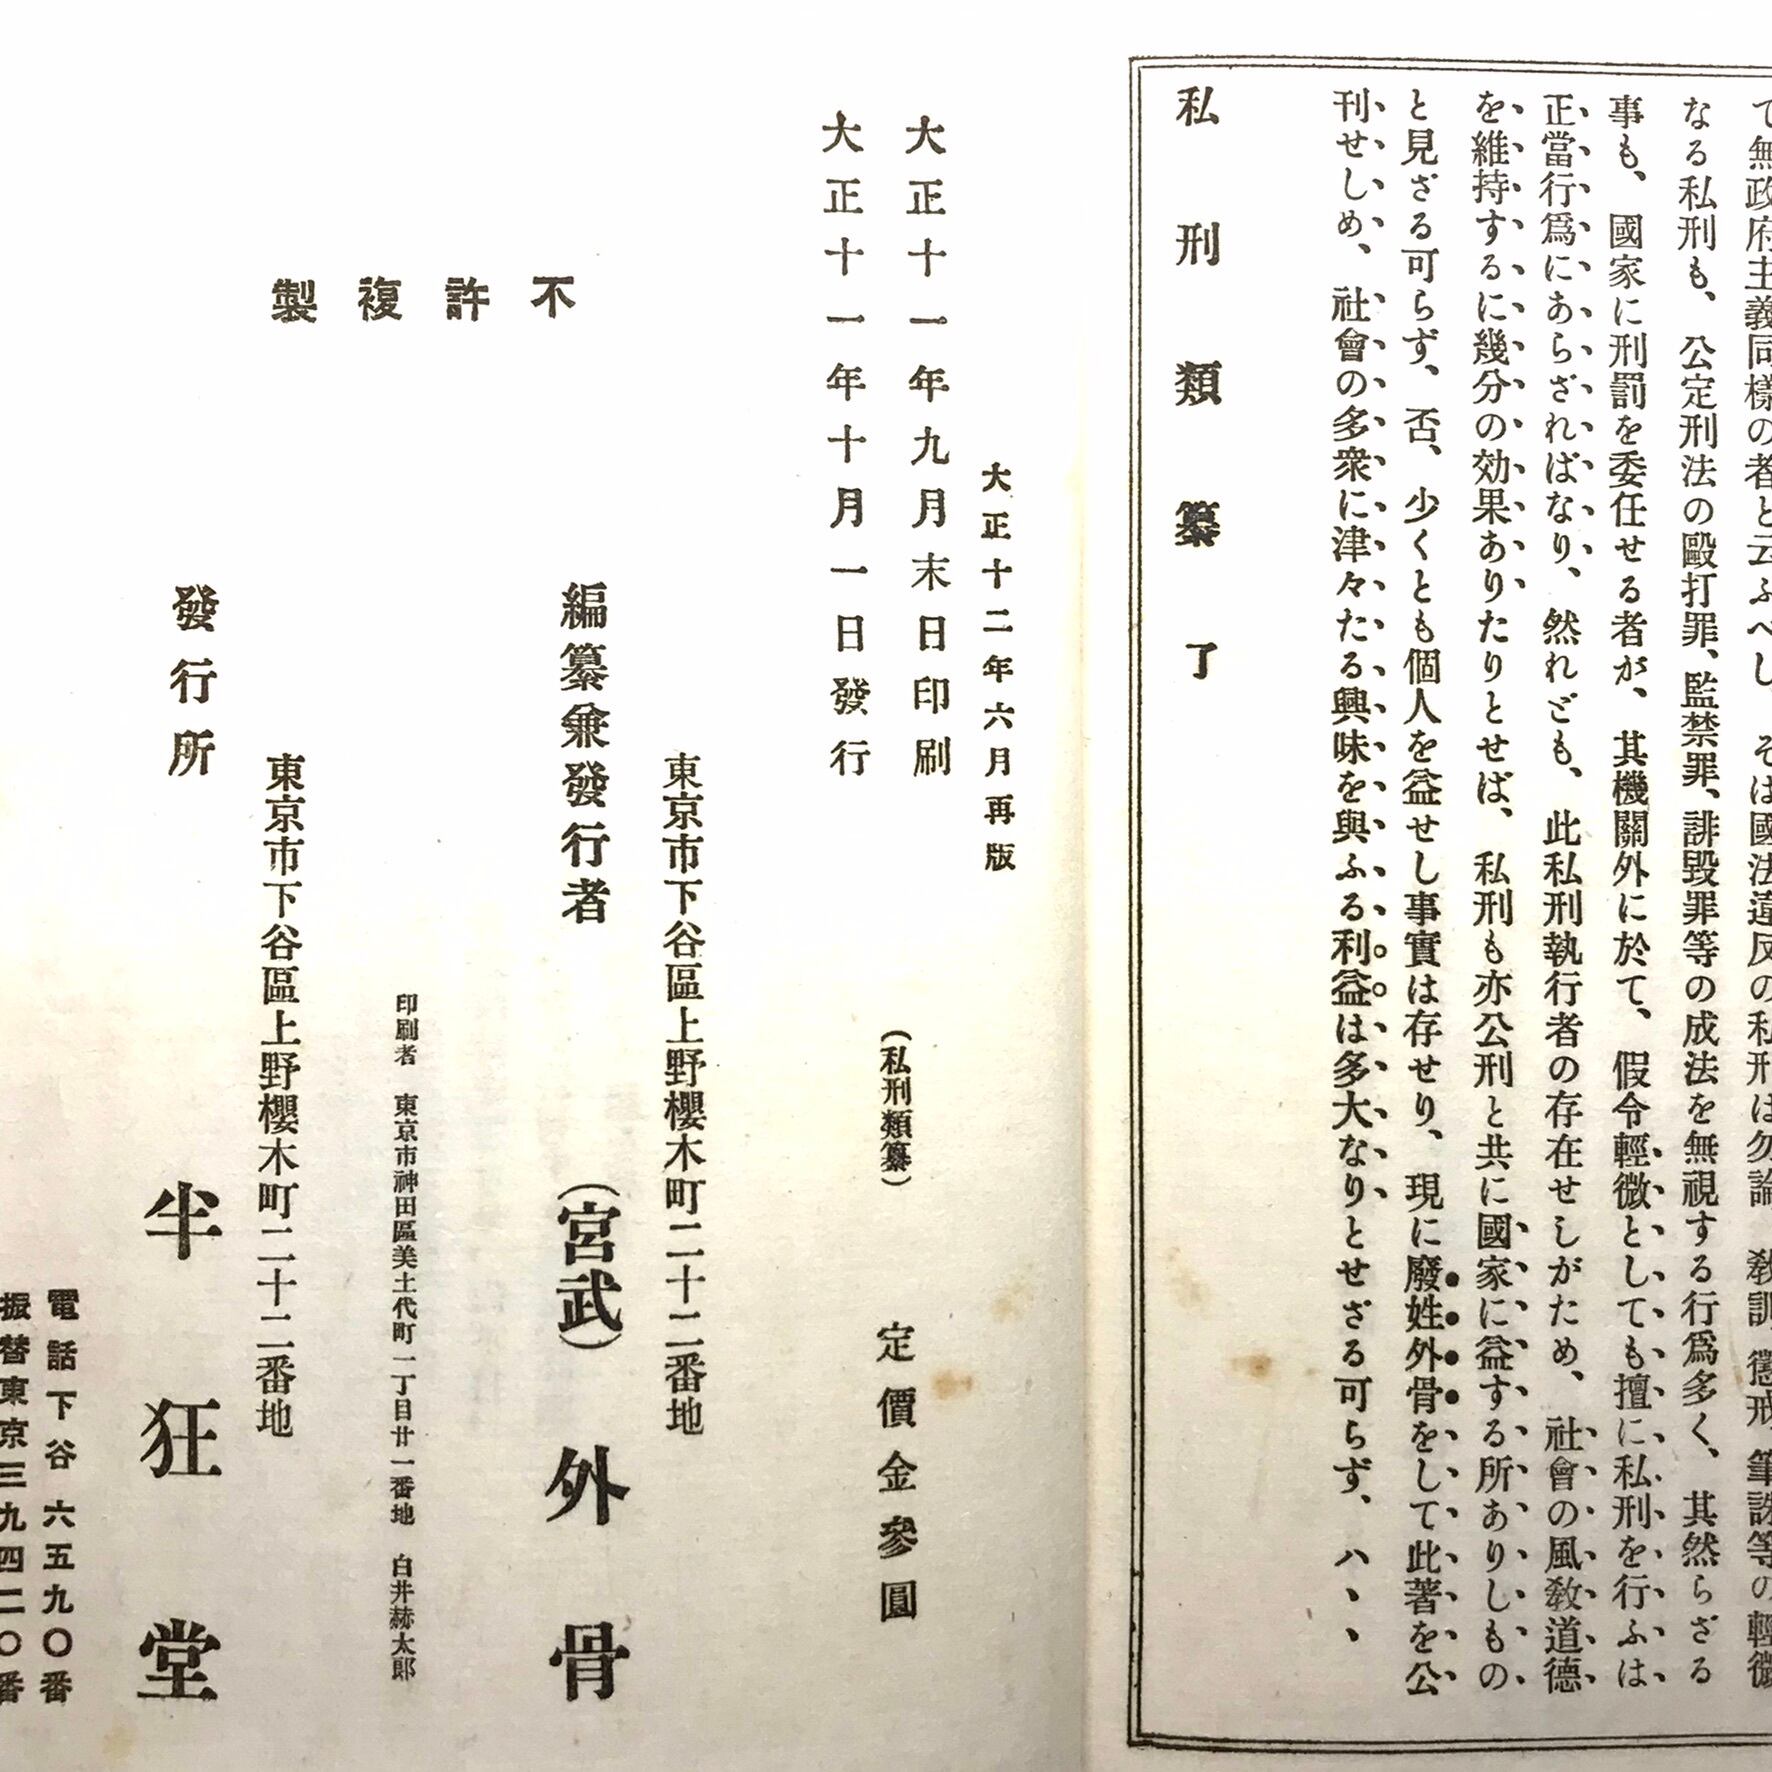 て無政府主義同樣の者と云ふべし、そは國法違反の私刑は勿論、敎訓、懲戒、筆誅等の輕微
なる私刑も、公定刑法の毆打罪、監禁罪、誹毀罪等の成法を無視する行爲多く、其然らざる
事も、國家に刑罰を委任せる者が、其機關外に於て、假令輕微としても擅に私刑を行ふは
正當行爲にあらざればなり、然れども、此私刑執行者の存在せしがため、社會の風敎道德
を維持するに幾分の効果ありたりとせば、私刑も亦公刑と共に國家に益する所ありしもの
と見ざる可らず、否、少くとも個人を益せし事實は存せり、現に廢姓外骨をして此著を公
刊せしめ、社會の多衆に津々たる興味を與ふる利益は多大なりとせざる可らず、ハヽヽ
私刑類纂了
大正十二年六月再版
大正十一年九月末日印刷
大正十一年十月一日發行
（私刑類纂）　定價金參圓
東京市下谷區上野櫻木町二十二番地
編纂兼發行者　（宮武）外骨
不許複製
印刷者　東京市神田區美土代町二丁目廿一番地　白井赫太郎
東京市下谷區上野櫻木町二十二番地
發行所　半狂堂
電話下谷六五九〇番
振替東京三九四二〇番